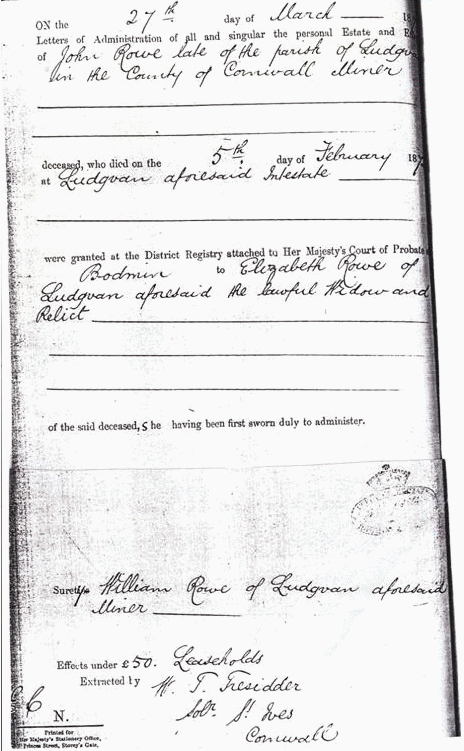 ON the 27th. day of March 18
Letters of Administration of all and singular the personal Estate and E
of John Rowe late of the parish of Ludgv
in the County of Cornwall Miner
deceased, who died on the 5th. day of February 187
at Ludgvan aforesaid Intestate
were granted at the District Registry attached to Her Majesty's Court of Probate
Bodmin to Elizabeth Rowe of
Ludgvan aforesaid the lawful Widow and
Relict
of the said deceased, She having been first sworn duly to administer.
Surety William Rowe of Ludgvan aforesaid
Miner
Effects under £50. Leaseholds
Extracted by W. T. Tresidder
Solr. St Ives
Cornwall
N.
Printed for
Her Majesty's Stationery Office,
Princes Street, Storey's Gate,